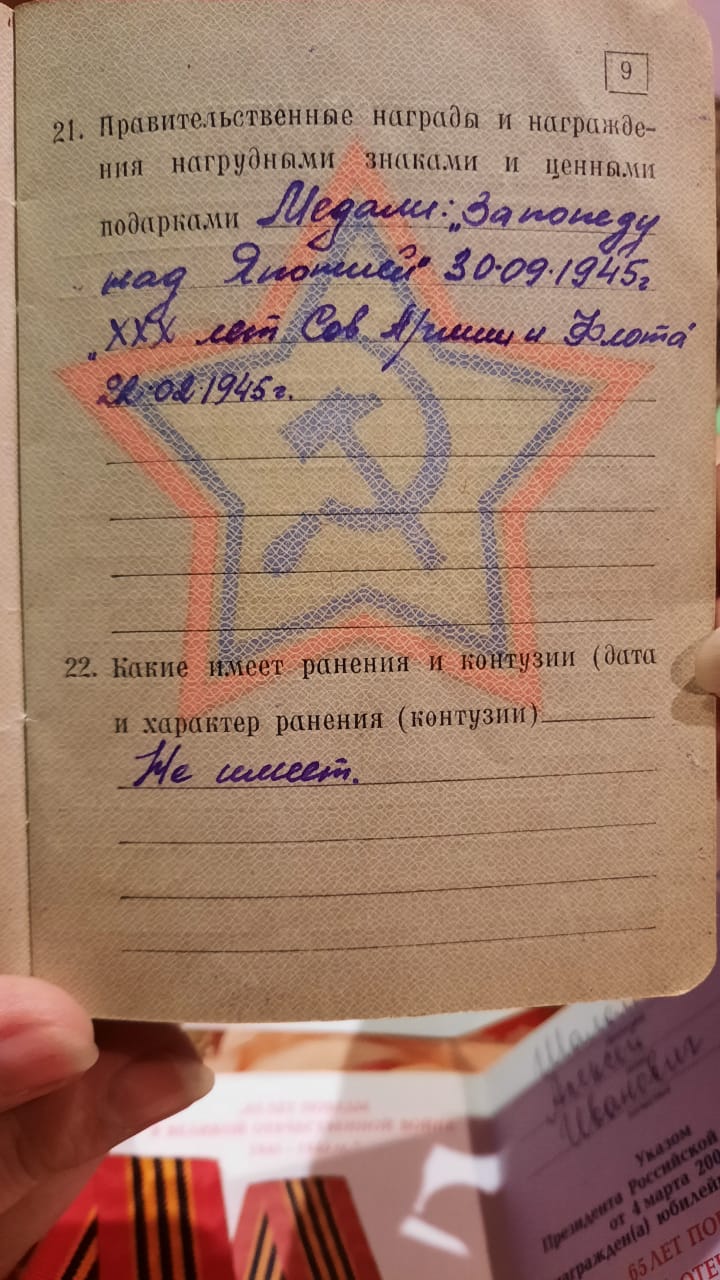 9
21. Правительственные награды и награжде-
ния нагрудными знаками и ценными
подарками Медали: „За победу
над Японией" 30.09.1945г
„XXX лет Сов Армии и Флота"
22.02.1945г.
22. Какие имеет ранения и контузии (дата
и характер ранения (контузии)
Не имеет.
Алексей
Иванович
Указом
Президента Российской
от 4 марта 200
награжден(а) юбилей
65 ЛЕТ ПО